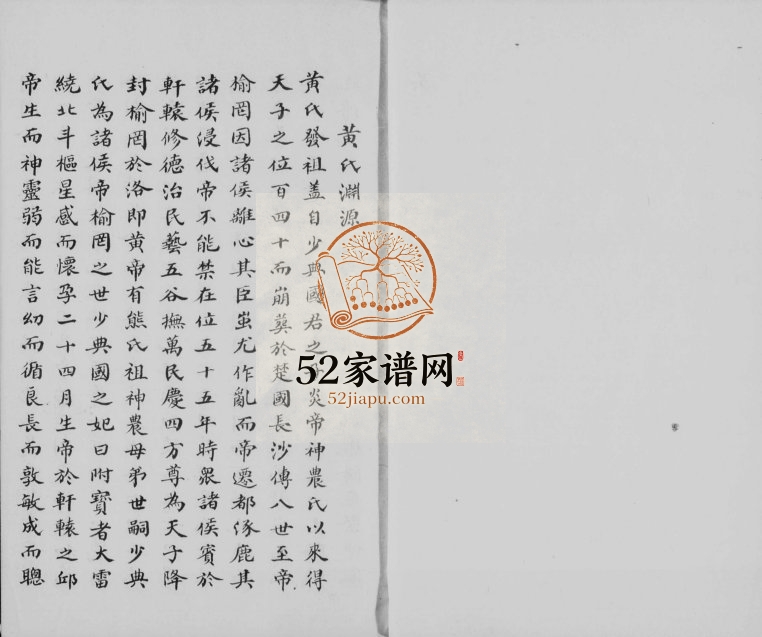 黃氏淵源
黃氏發祖盖自少典國君之子炎帝神農氏以來得
天子之位百四十而崩葬於楚國長沙傳八世至帝
榆罔因諸侯離心其臣蚩尤作亂而帝遷都涿鹿其
諸侯浸伐帝不能禁在位五十五年時眾諸侯賓於
軒轅修德治民藝五谷撫萬民慶四方尊為天子降
封榆罔於洛即黃帝有熊氏祖神農母弟世嗣少典
氏為諸侯帝榆罔之世少典國之妃曰附寶者大雷
繞北斗樞星感而懷孕二十四月生帝於軒轅之邱
帝生而神靈弱而能言幼而循良長而敦敏成而聰
52家谱网
52jiapu.com